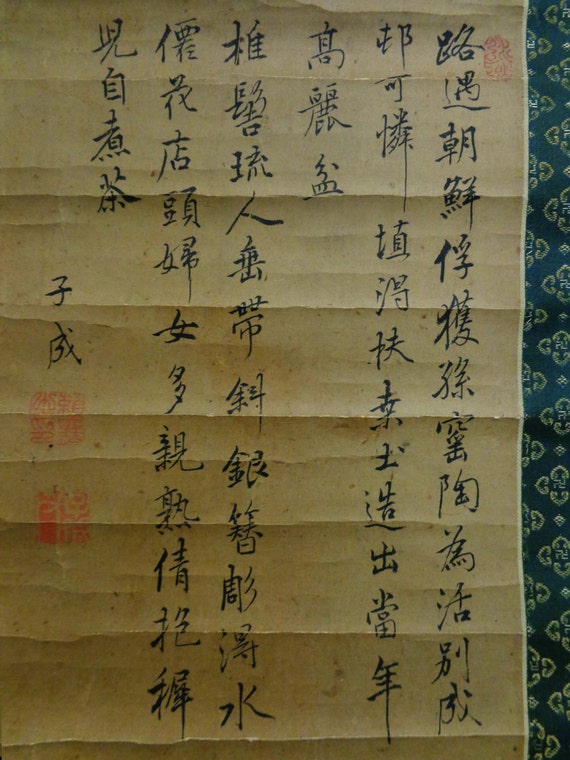 路遇朝鮮俘獲孫窯陶為活別成
邨可憐埴得扶桒土造出當年
高麗盆
椎髻琉人垂帶斜銀簪彫得水
僊花店頭婦女多親熟倩抱穉
児自煮茶
子成